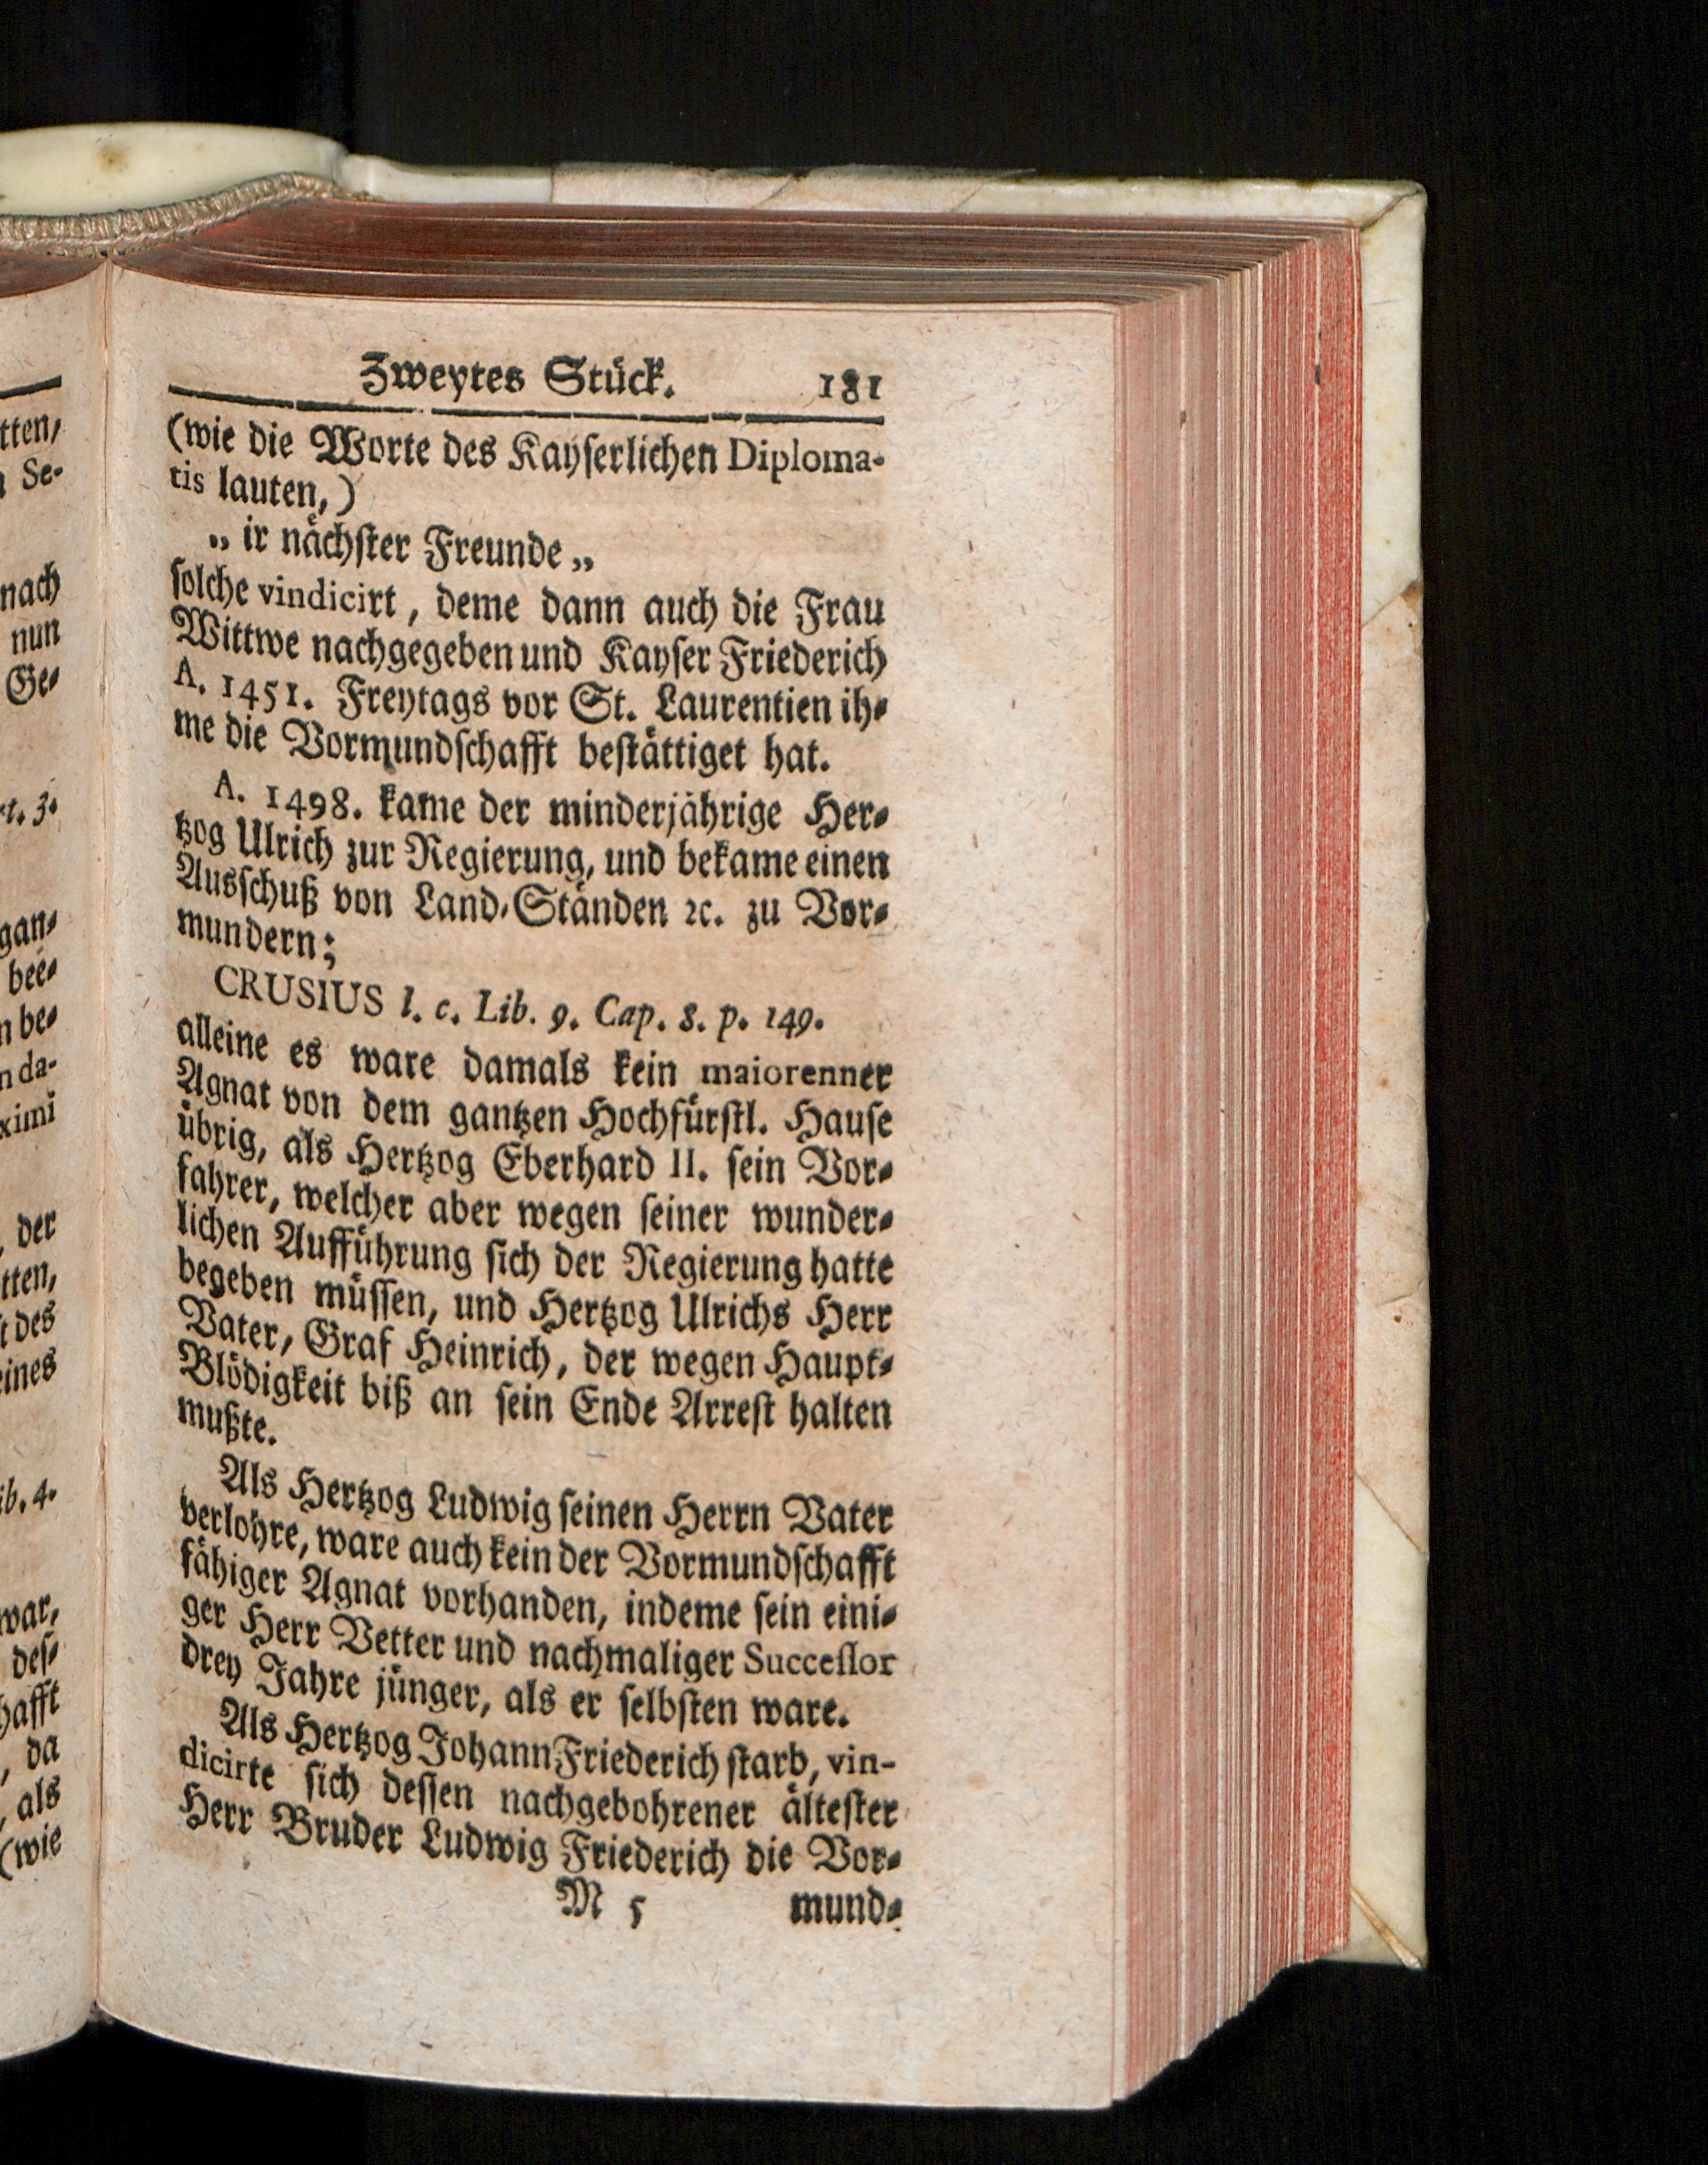 Zweytes Stück. 181
(wie die Worte des Kayserlichen Diploma-
tis lauten,)
„ ir nächster Freunde „
solche vindicirt, deme dann auch die Frau
Wittwe nachgegeben und Kayser Friederich
A. 1451. Freytags vor St. Laurentien ih-
me die Vormundschafft bestättiget hat.
A. 1498. kame der minderjährige Her-
tzog Ulrich zur Regierung, und bekame einen
Ausschuß von Land-Ständen ꝛc. zu Vor-
mundern;
CRUSIUS l. c. Lib. 9. Cap. 8. p. 149.
alleine es ware damals kein maiorenner
Agnat von dem gantzen Hochfürstl. Hause
übrig, als Hertzog Eberhard II. sein Vor-
fahrer, welcher aber wegen seiner wunder-
lichen Aufführung sich der Regierung hatte
begeben müssen, und Hertzog Ulrichs Herr
Vater, Graf Heinrich, der wegen Haupt-
Blödigkeit biß an sein Ende Arrest halten
mußte.
Als Hertzog Ludwig seinen Herrn Vater
verlohre, ware auch kein der Vormundschafft
fähiger Agnat vorhanden, indeme sein eini-
ger Herr Vetter und nachmaliger Successor
drey Jahre jünger, als er selbsten ware.
Als Hertzog Johann Friederich starb, vin-
dicirte sich dessen nachgebohrener ältester
Herr Bruder Ludwig Friederich die Vor-
M 5 mund-